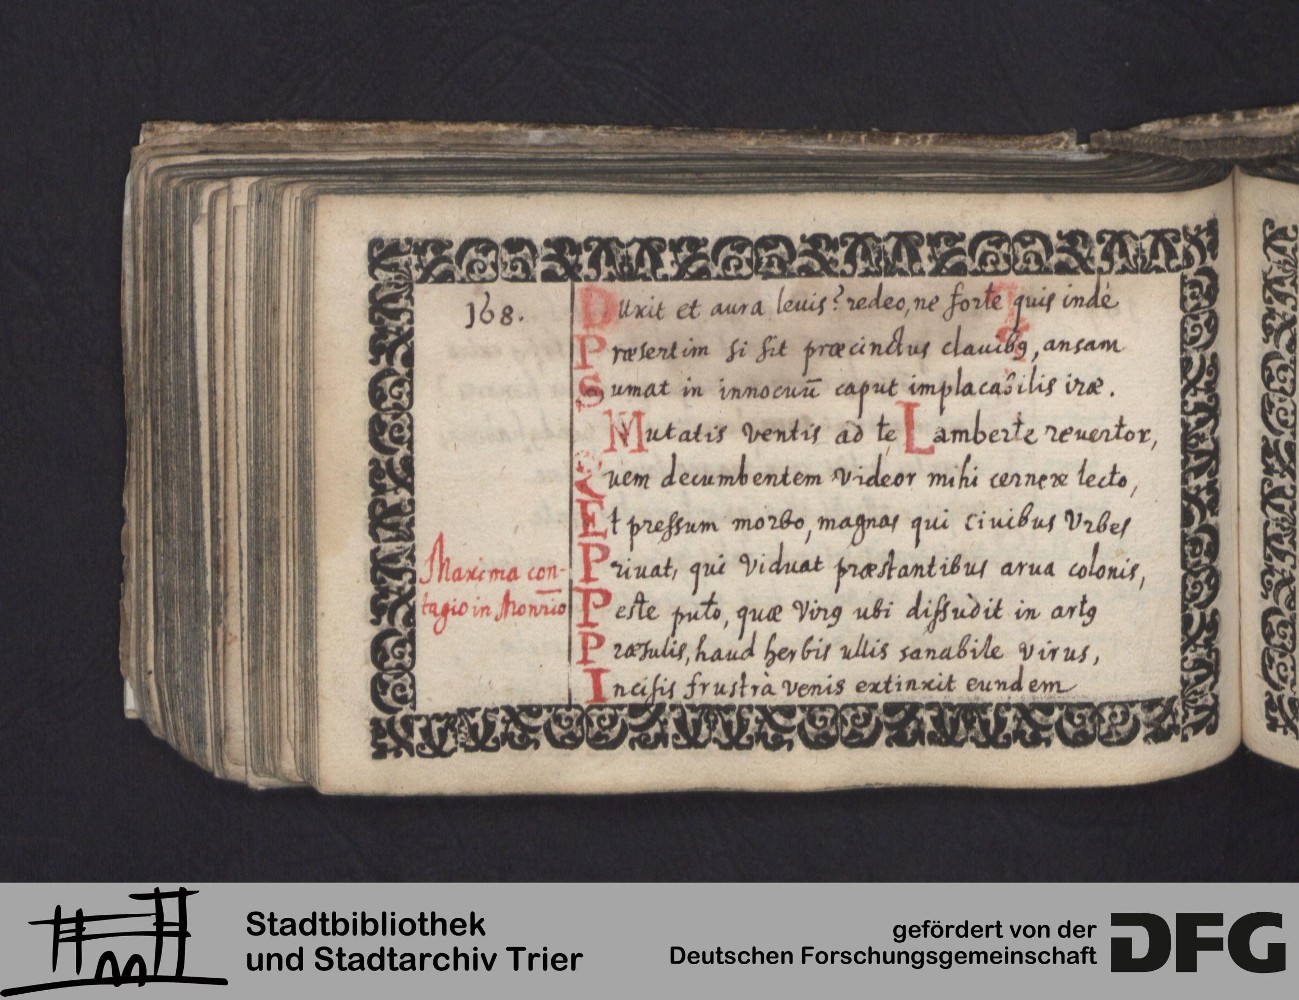 168.
Duxit et aura leuis? redeo, ne forte quis indè
Præsertim si sit præcinctus clauibꝯ, ansam
Sumat in innocuū caput implacabilis iræ.
Mutatis ventis ad te Lamberte reuertor,
Quem decumbentem videor mihi cernere lecto,
Et pressum morbo, magnas qui ciuibus vrbes
Priuat, qui viduat præstantibus arua colonis,
Maxima con-
tagio in Monrīo
Peste puto, quæ virꝯ ubi dissudit in artꝯ
Præsulis, haud herbis ullis sanabile virus,
Incisis frustrà venis extinxit eundem
Stadtbibliothek
und Stadtarchiv Trier
gefördert von der
Deutschen Forschungsgemeinschaft
DFG